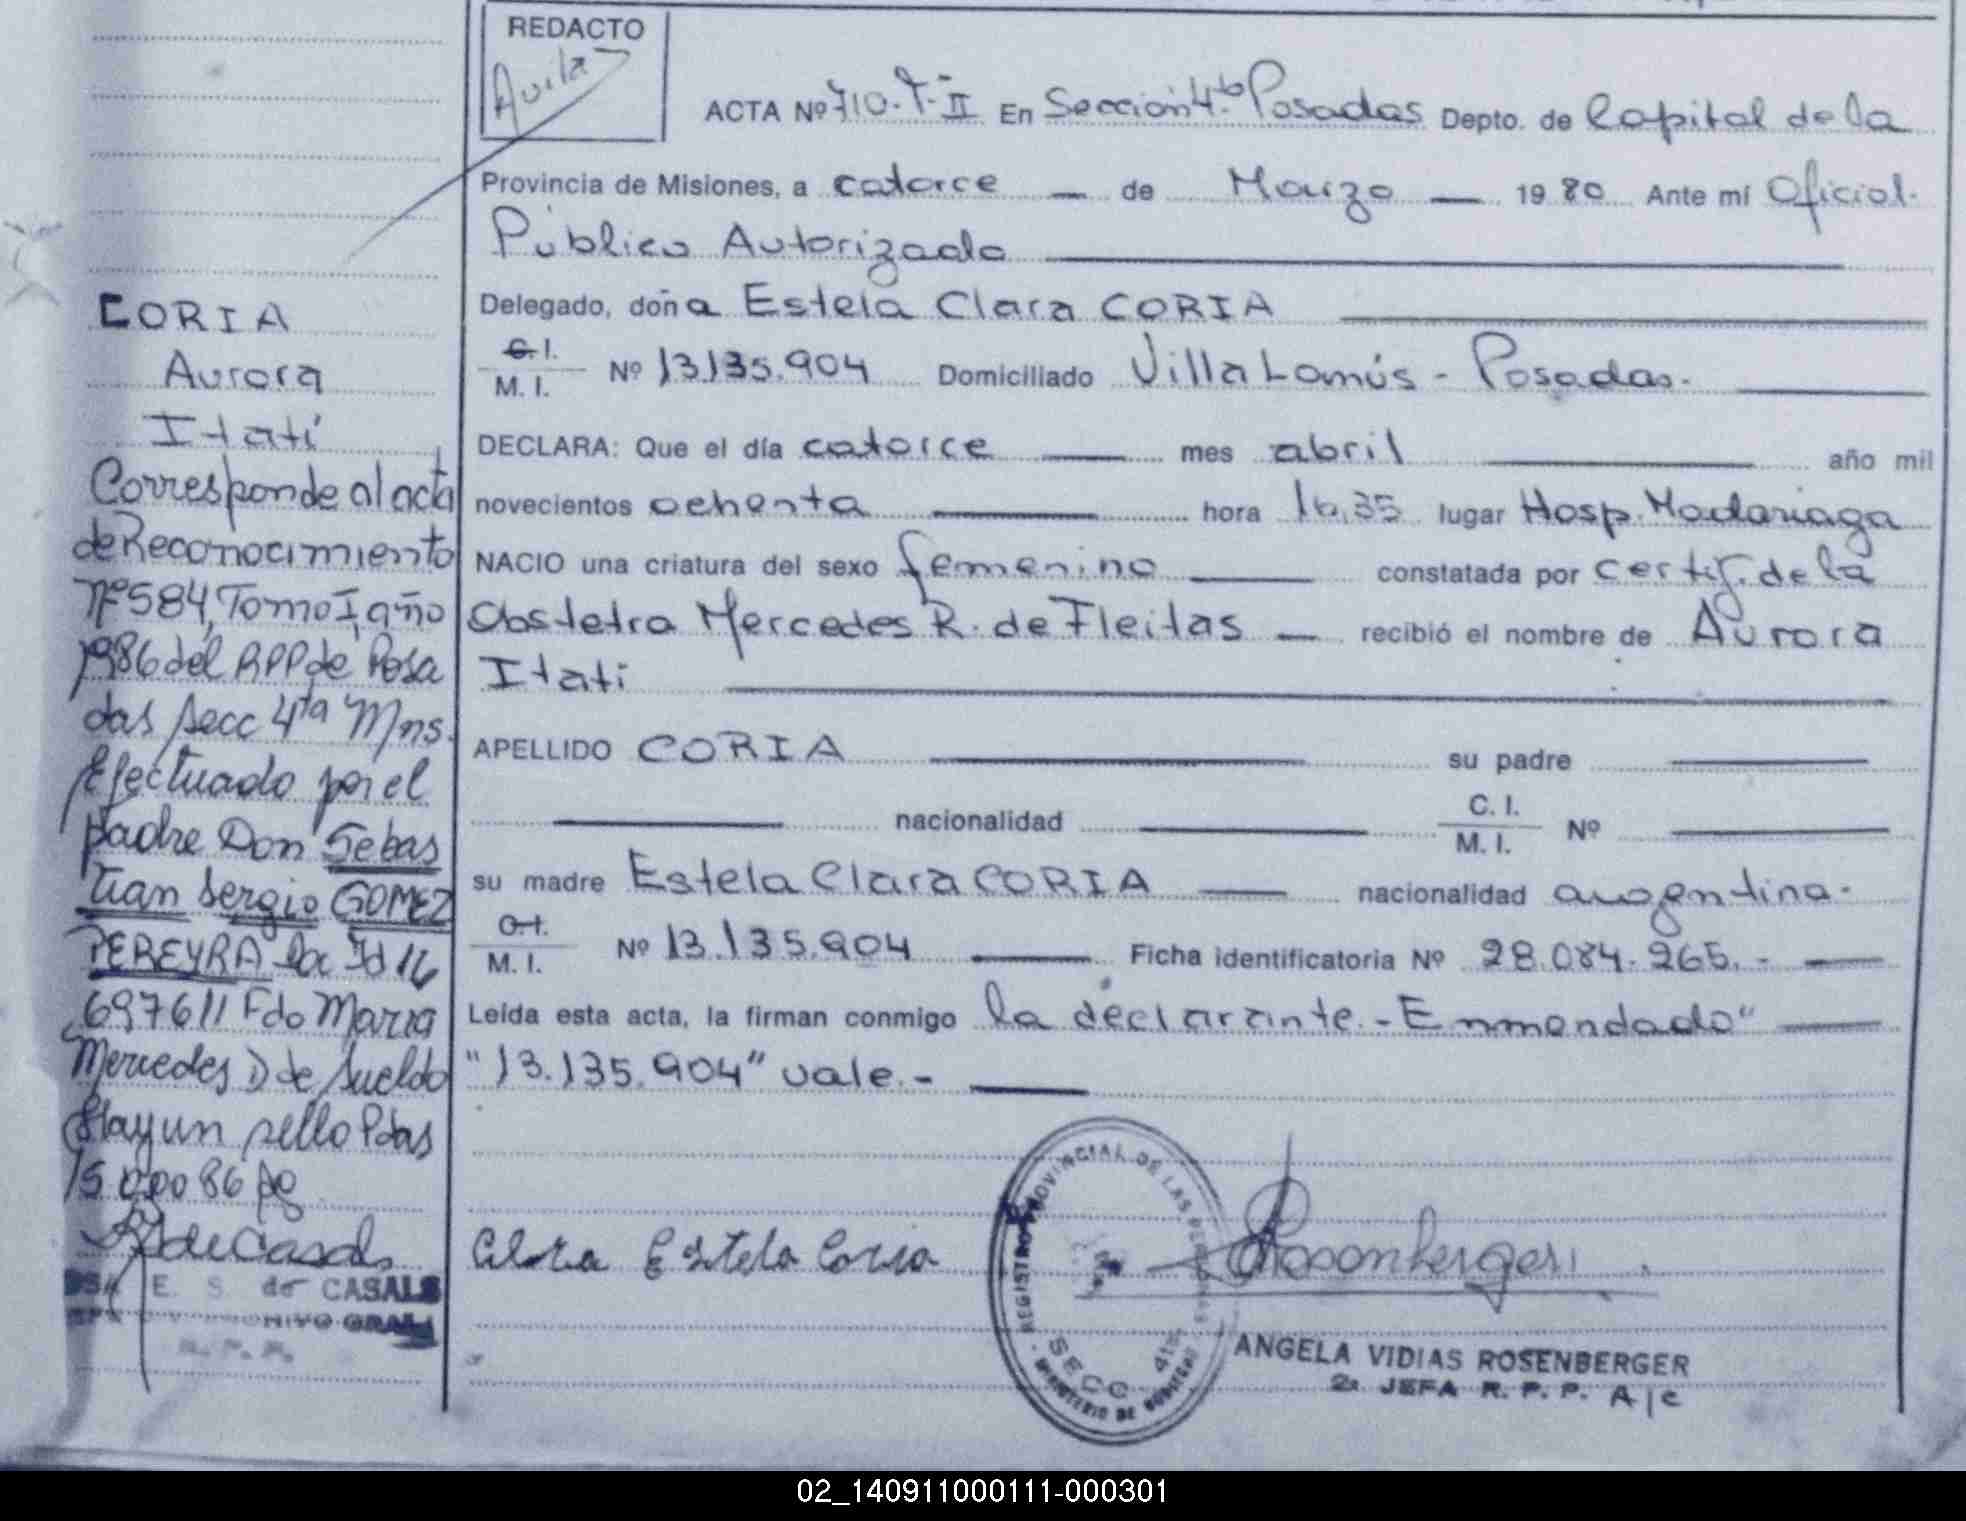 REDACTO
Avila
ACTA Nº 710-T-II En Sección 4ta Posadas Depto. de Capital de la
Provincia de Misiones, a catorce — de Marzo — 1980 Ante mí Oficial
Público Autorizado
Delegado, doña Estela Clara CORIA
C.I.
M. I. Nº 13.135.904 Domiciliado Villa Lanús - Posadas.
DECLARA: Que el día catorce mes abril año mil
novecientos ochenta hora 16,35 lugar Hosp. Madariaga
NACIO una criatura del sexo femenino constatada por certif. de la
Obstetra Mercedes R. de Fleitas — recibió el nombre de Aurora
Itatí
APELLIDO CORIA su padre
nacionalidad C. I.
M. I. Nº
su madre Estela Clara CORIA nacionalidad argentina.
C.I.
M. I. Nº 13.135.904 Ficha identificatoria Nº 28.084.265.-
Leída esta acta, la firman conmigo la declarante.- Enmendado"
"13.135.904" vale.-
Clara Estela Coria
Rosenberger
REGISTRO PROVINCIAL DE LAS PERSONAS
SECC. 4ta.
MINISTERIO DE GOBIERNO
ANGELA VIDIAS ROSENBERGER
2a JEFA R. P. P. A/c
CORIA
Aurora
Itatí
Corresponde al acta
de Reconocimiento
Nº 584, Tomo I, año
1986 del RPP de Posa
das secc 4ta Mns.
Efectuado por el
padre Don Sebas
tian Sergio GOMEZ
PEREYRA Id 16
697611 Fdo Maria
Mercedes D de Sueldo
Hay un sello Pdas
86
de Casals
E. S. de CASALS
ARCHIVO GRAL
R. P. P.
02_140911000111-000301